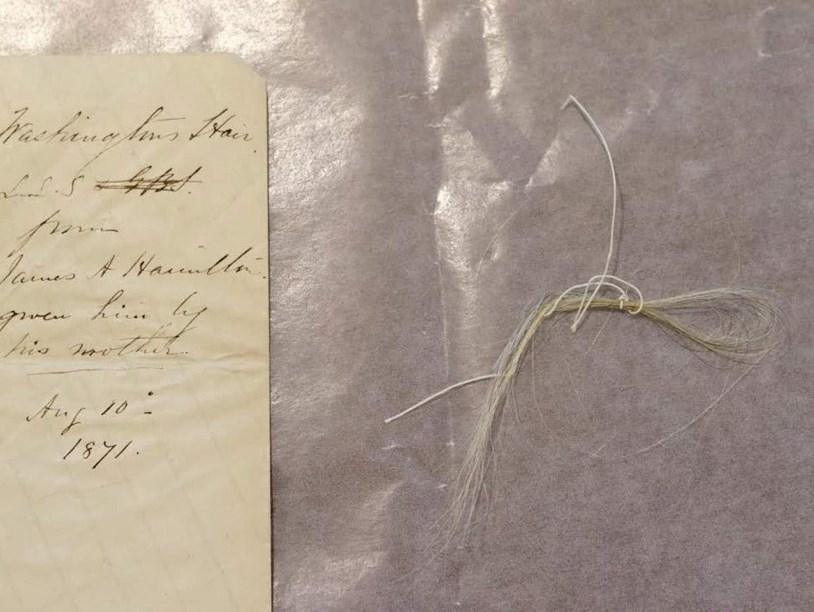 Washington's Hair
from
James A Hamilton.
given him by
his mother.
Aug 10
1871.